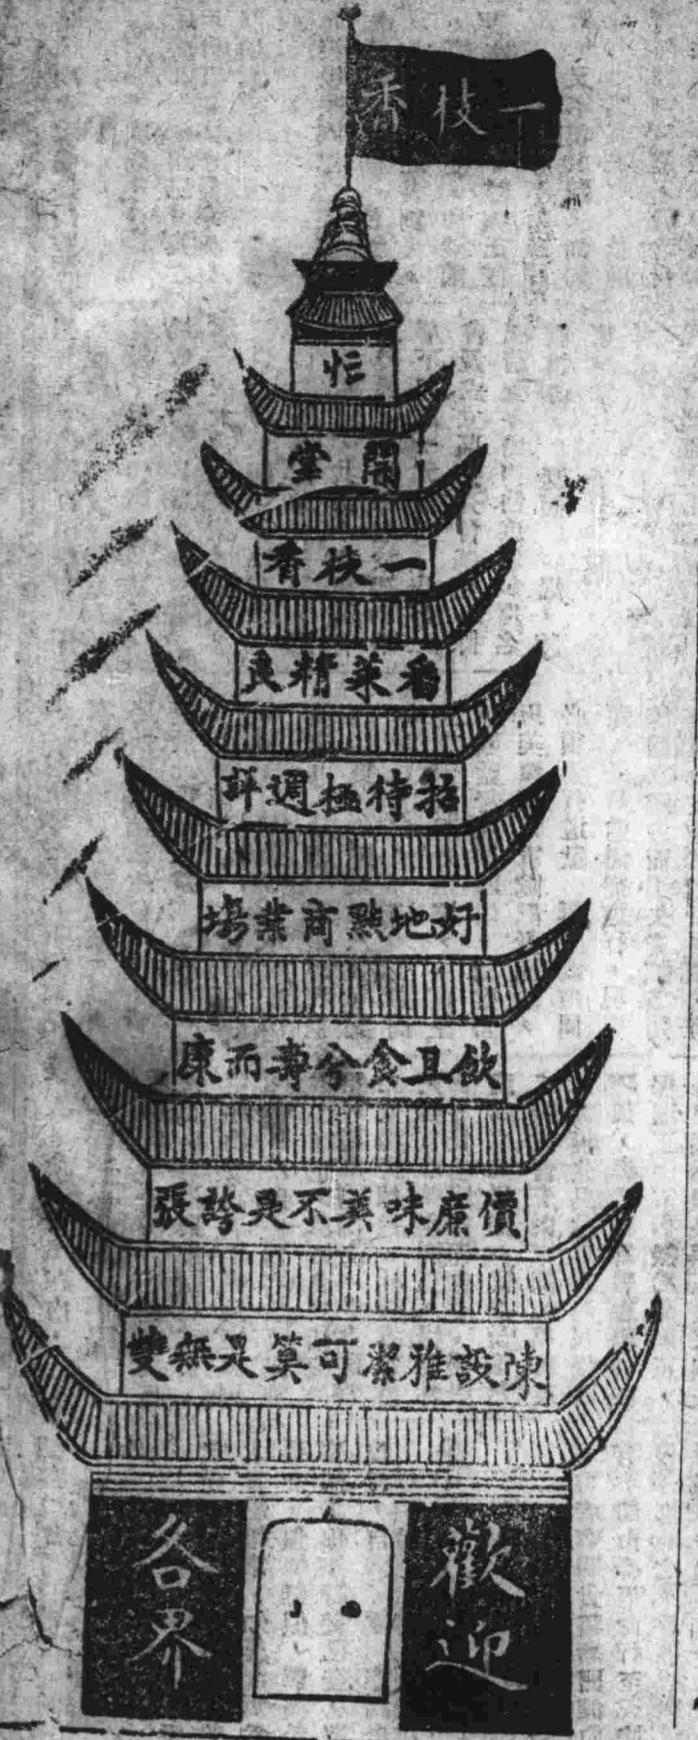 一枝香
忙
鬧堂
一枝香
番菜精良
招待極週詳
好地點商業場
飲且食兮壽而康
價廉味美不是誇張
陳設雅潔可算是無雙
歡迎
各界